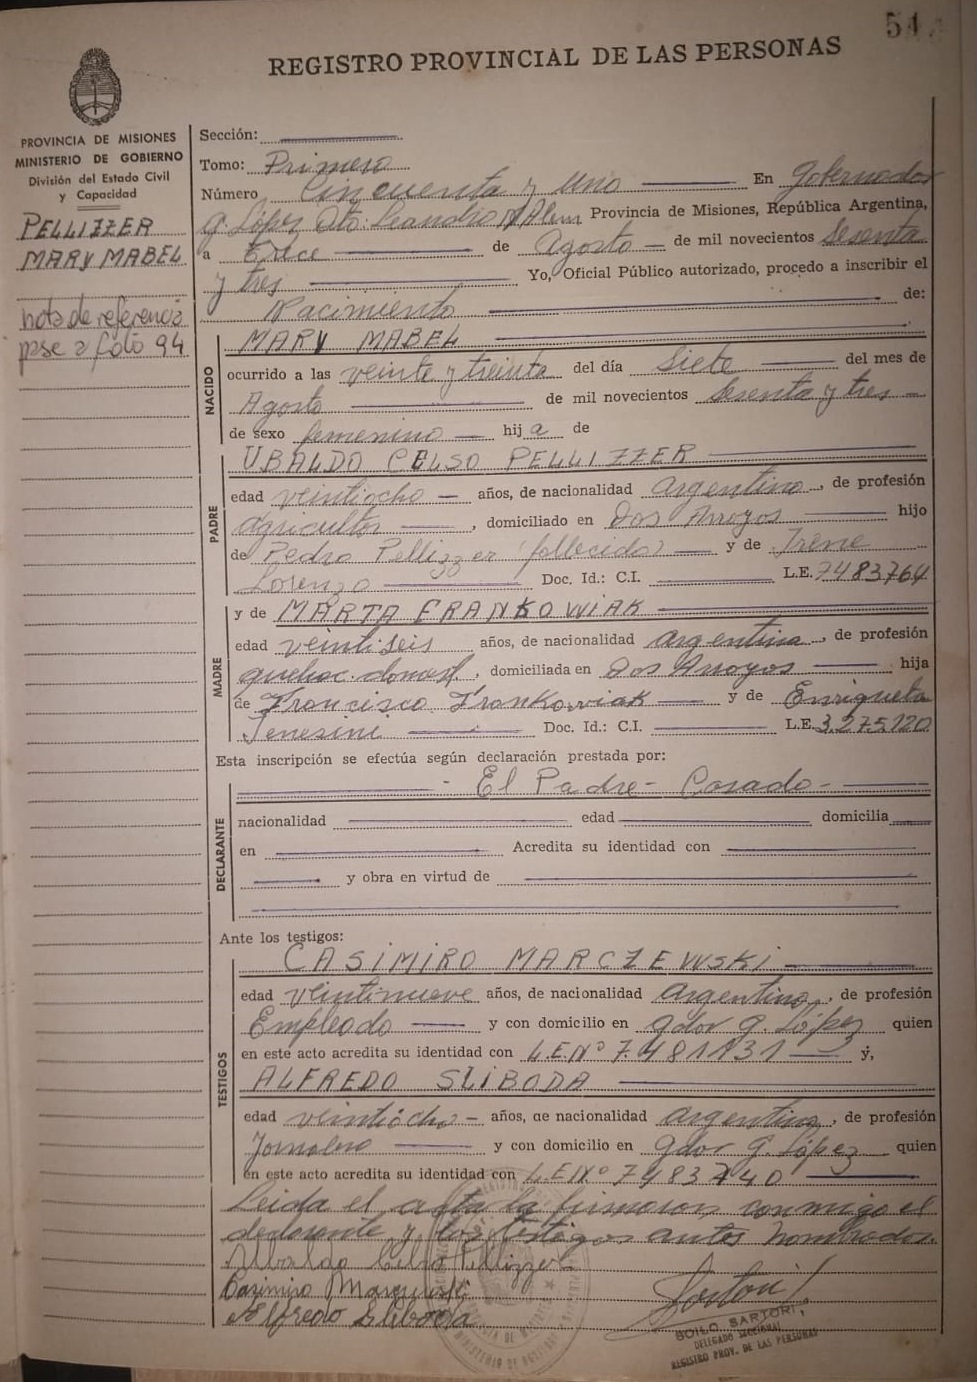 54
REGISTRO PROVINCIAL DE LAS PERSONAS
PROVINCIA DE MISIONES
MINISTERIO DE GOBIERNO
División del Estado Civil
y Capacidad
PELLIZZER
MARY MABEL
nota de referencia
pse a folio 94
Sección:
Tomo: Primero
Número Cincuenta y Uno En Gobernador
G. López Dto. Leandro N. Alem Provincia de Misiones, República Argentina,
a Trece de Agosto de mil novecientos Sesenta
y tres Yo, Oficial Público autorizado, procedo a inscribir el
Nacimiento de:
NACIDO
MARY MABEL
ocurrido a las veinte y treinta del día Siete del mes de
Agosto de mil novecientos Sesenta y tres
de sexo femenino hija de
PADRE
UBALDO CELSO PELLIZZER
edad veintiocho años, de nacionalidad argentino, de profesión
agricultor, domiciliado en Dos Arroyos hijo
de Pedro Pellizzer (fallecido) y de Irene
Lorenzo Doc. Id.: C.I. L.E. 7483764
MADRE
y de MARTA FRANKOWIAK
edad veintiseis años, de nacionalidad argentina, de profesión
quehac. domest., domiciliada en Dos Arroyos hija
de Francisco Frankowiak y de Enriqueta
Doc. Id.: C.I. L.E. 3.275.120
Esta inscripción se efectúa según declaración prestada por:
DECLARANTE
- El Padre - Casado -
nacionalidad edad domicilia
en Acredita su identidad con
y obra en virtud de
Ante los testigos:
TESTIGOS
CASIMIRO MARCZEWSKI
edad veintinueve años, de nacionalidad argentino, de profesión
Empleado y con domicilio en gdor G. López quien
en este acto acredita su identidad con L.E.Nº 7.481131 y,
ALFREDO SLIBODA
edad veintiocho años, de nacionalidad argentino, de profesión
Jornalero y con domicilio en gdor G. López quien
en este acto acredita su identidad con L.E.Nº 7483740
Leida el acta la firmaron conmigo el
declarante y los testigos antes nombrados.
Ubaldo Celso Pellizzer
Casimiro
Alfredo Sliboda
Sartori
BOILO SARTORI
DELEGADO SECCIONAL
REGISTRO PROV. DE LAS PERSONAS